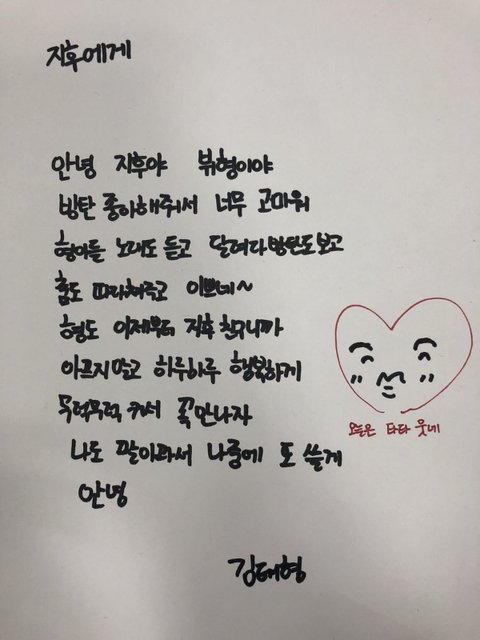 지후에게
안녕 지후야 뷔형이야
방탄 좋아해줘서 너무 고마워
형아들 노래도 듣고 달려라방탄도보고
춤도 따라춰주고 이쁘네~
형도 이제부터 지후 친구니까
아프지말고 하루하루 행복하게
무럭무럭 커서 꼭만나자
나도 팔아파서 나중에 또 쓸게
안녕
김태형
오늘은 타타 웃네